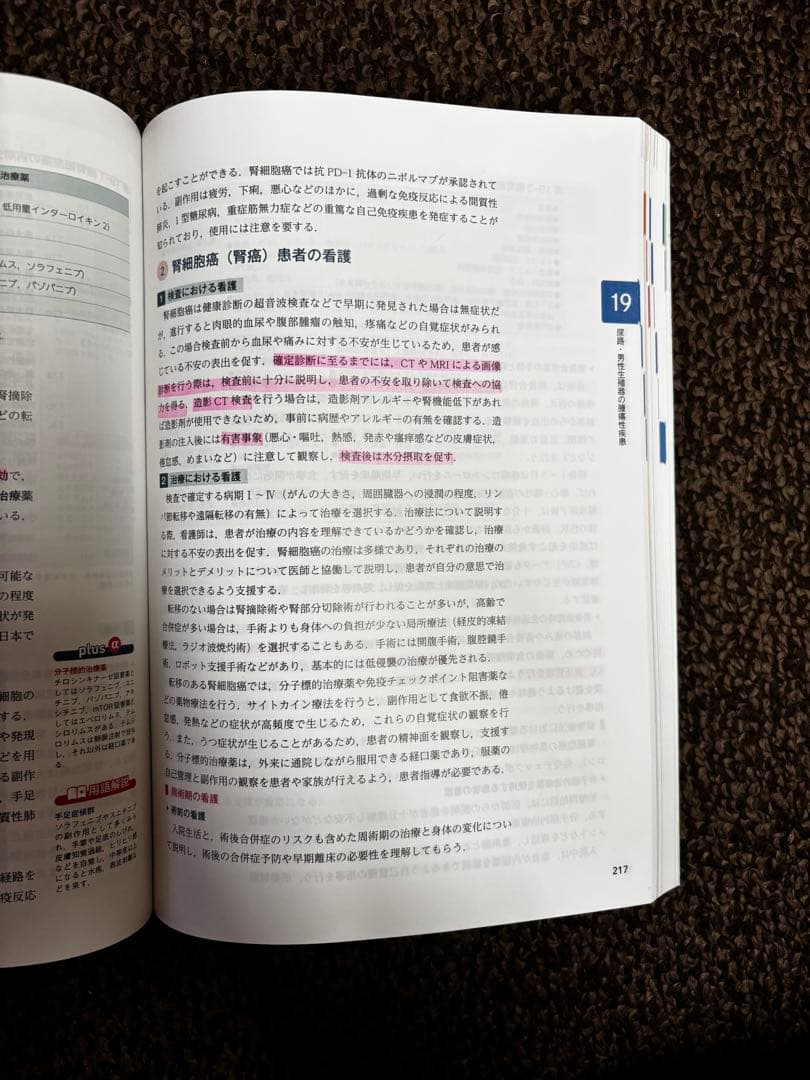 治療薬
低用量インターロイキン2)
ムス，ソラフェニブ)
ニブ，パゾパニブ)
腎摘除
どの転
効で，
治療薬
いる．
可能な
の程度
状が発
日本で
plus α
分子標的治療薬
チロシンキナーゼ阻害薬と
してはソラフェニブ，スニ
チニブ，パゾパニブ，アキ
シチニブ，mTOR阻害薬と
してはエベロリムス，テム
シロリムスがある．テムシ
ロリムスは静脈注射で投与
し，それ以外は経口薬であ
る．
細胞の
する．
や発現
どを用
る副作
，手足
間質性肺
用語解説
手足症候群
ソラフェニブやスニチニブ
の副作用として多くみら
れ，手掌や足底のしびれ，
皮膚知覚過敏，ヒリヒリ感
などを自覚し，
になると水疱，表皮剥離な
どを来す．
経路を
疫反応
を起こすことができる．腎細胞癌では抗 PD-1 抗体のニボルマブが承認されて
いる．副作用は疲労，下痢，悪心などのほかに，過剰な免疫反応による間質性
肺炎，1 型糖尿病，重症筋無力症などの重篤な自己免疫疾患を発症することが
知られており，使用には注意を要する．
2 腎細胞癌（腎癌）患者の看護
1 検査における看護
腎細胞癌は健康診断の超音波検査などで早期に発見された場合は無症状だ
が，進行すると肉眼的血尿や腹部腫瘤の触知，疼痛などの自覚症状がみられ
る．この場合検査前から血尿や痛みに対する不安が生じているため，患者が感
じている不安の表出を促す．確定診断に至るまでには，CT や MRI による画像
診断を行う際は，検査前に十分に説明し，患者の不安を取り除いて検査への協
力を得る．造影 CT 検査を行う場合は，造影剤アレルギーや腎機能低下があれ
ば造影剤が使用できないため，事前に病歴やアレルギーの有無を確認する．造
影剤の注入後には有害事象（悪心・嘔吐，熱感，発赤や瘙痒感などの皮膚症状，
倦怠感，めまいなど）に注意して観察し，検査後は水分摂取を促す．
2 治療における看護
検査で確定する病期Ⅰ～Ⅳ（がんの大きさ，周囲臓器への浸潤の程度，リン
パ節転移や遠隔転移の有無）によって治療を選択する．治療法について説明す
る際，看護師は，患者が治療の内容を理解できているかどうかを確認し，治療
に対する不安の表出を促す．腎細胞癌の治療は多様であり，それぞれの治療の
メリットとデメリットについて医師と協働して説明し，患者が自分の意思で治
療を選択できるよう支援する．
転移のない場合は腎摘除術や腎部分切除術が行われることが多いが，高齢で
合併症が多い場合は，手術よりも身体への負担が少ない局所療法（経皮的凍結
療法，ラジオ波焼灼術）を選択することもある．手術には開腹手術，腹腔鏡手
術，ロボット支援手術などがあり，基本的には低侵襲の治療が優先される．
転移のある腎細胞癌では，分子標的治療薬や免疫チェックポイント阻害薬な
どの薬物療法を行う．サイトカイン療法を行うと，副作用として食欲不振，倦
怠感，発熱などの症状が高頻度で生じるため，これらの自覚症状の観察を行
う．また，うつ症状が生じることがあるため，患者の精神面を観察し，支援す
る．分子標的治療薬は，外来に通院しながら服用できる経口薬であり，服薬の
自己管理と副作用の観察を患者や家族が行えるよう，患者指導が必要である．
周術期の看護
術前の看護
入院生活と，術後合併症のリスクも含めた周術期の治療と身体の変化につい
て説明し，術後の合併症予防や早期離床の必要性を理解してもらう．
19
尿路・男性生殖器の腫瘍性疾患
217